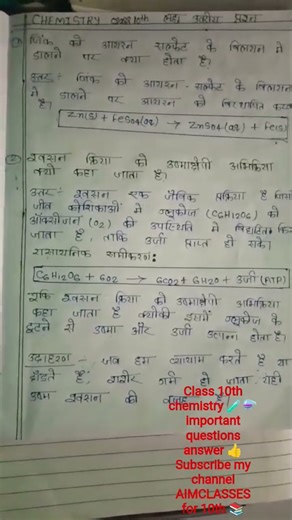 CHEMISTRY class 10th लघु उत्तरीय प्रश्न
① जिंक को आयरन सल्फेट के विलयन में
डालने पर क्या होता है।
उत्तर :- जिंक को आयरन - सल्फेट के विलयन
में डालने पर आयरन को विस्थापित करता
है।
Zn(s) + FeSO4(aq) → ZnSO4(aq) + Fe(s)
② श्वसन क्रिया को उष्माक्षेपी अभिक्रिया
क्यों कहा जाता है।
उत्तर:- श्वसन एक जैविक प्रक्रिया है
जीव कोशिकाओं में ग्लूकोज (C6H12O6) को
ऑक्सीजन (O2) की उपस्थिति में विघटित
जाता है, ताकि उर्जा प्राप्त हो सके।
रासायनिक समीकरण:
C6H12O6 + 6O2 → 6CO2 + 6H2O + उर्जा (ATP)
श्वसन क्रिया को उष्माक्षेपी अभिक्रिया
कहा जाता है क्योंकी इसमें ग्लूकोज के
टूटने से उष्मा और उर्जा उत्पन्न होता है।
उदाहरण :- जब हम व्यायाम करते हैं या
दौड़ते हैं, शरीर गर्म हो जाता, यही
उष्म श्वसन की वजह
Class 10th
chemistry🧪⚗️
Important
questions
answer👍
Subscribe my
channel
AIMCLASSES
for 10th📚